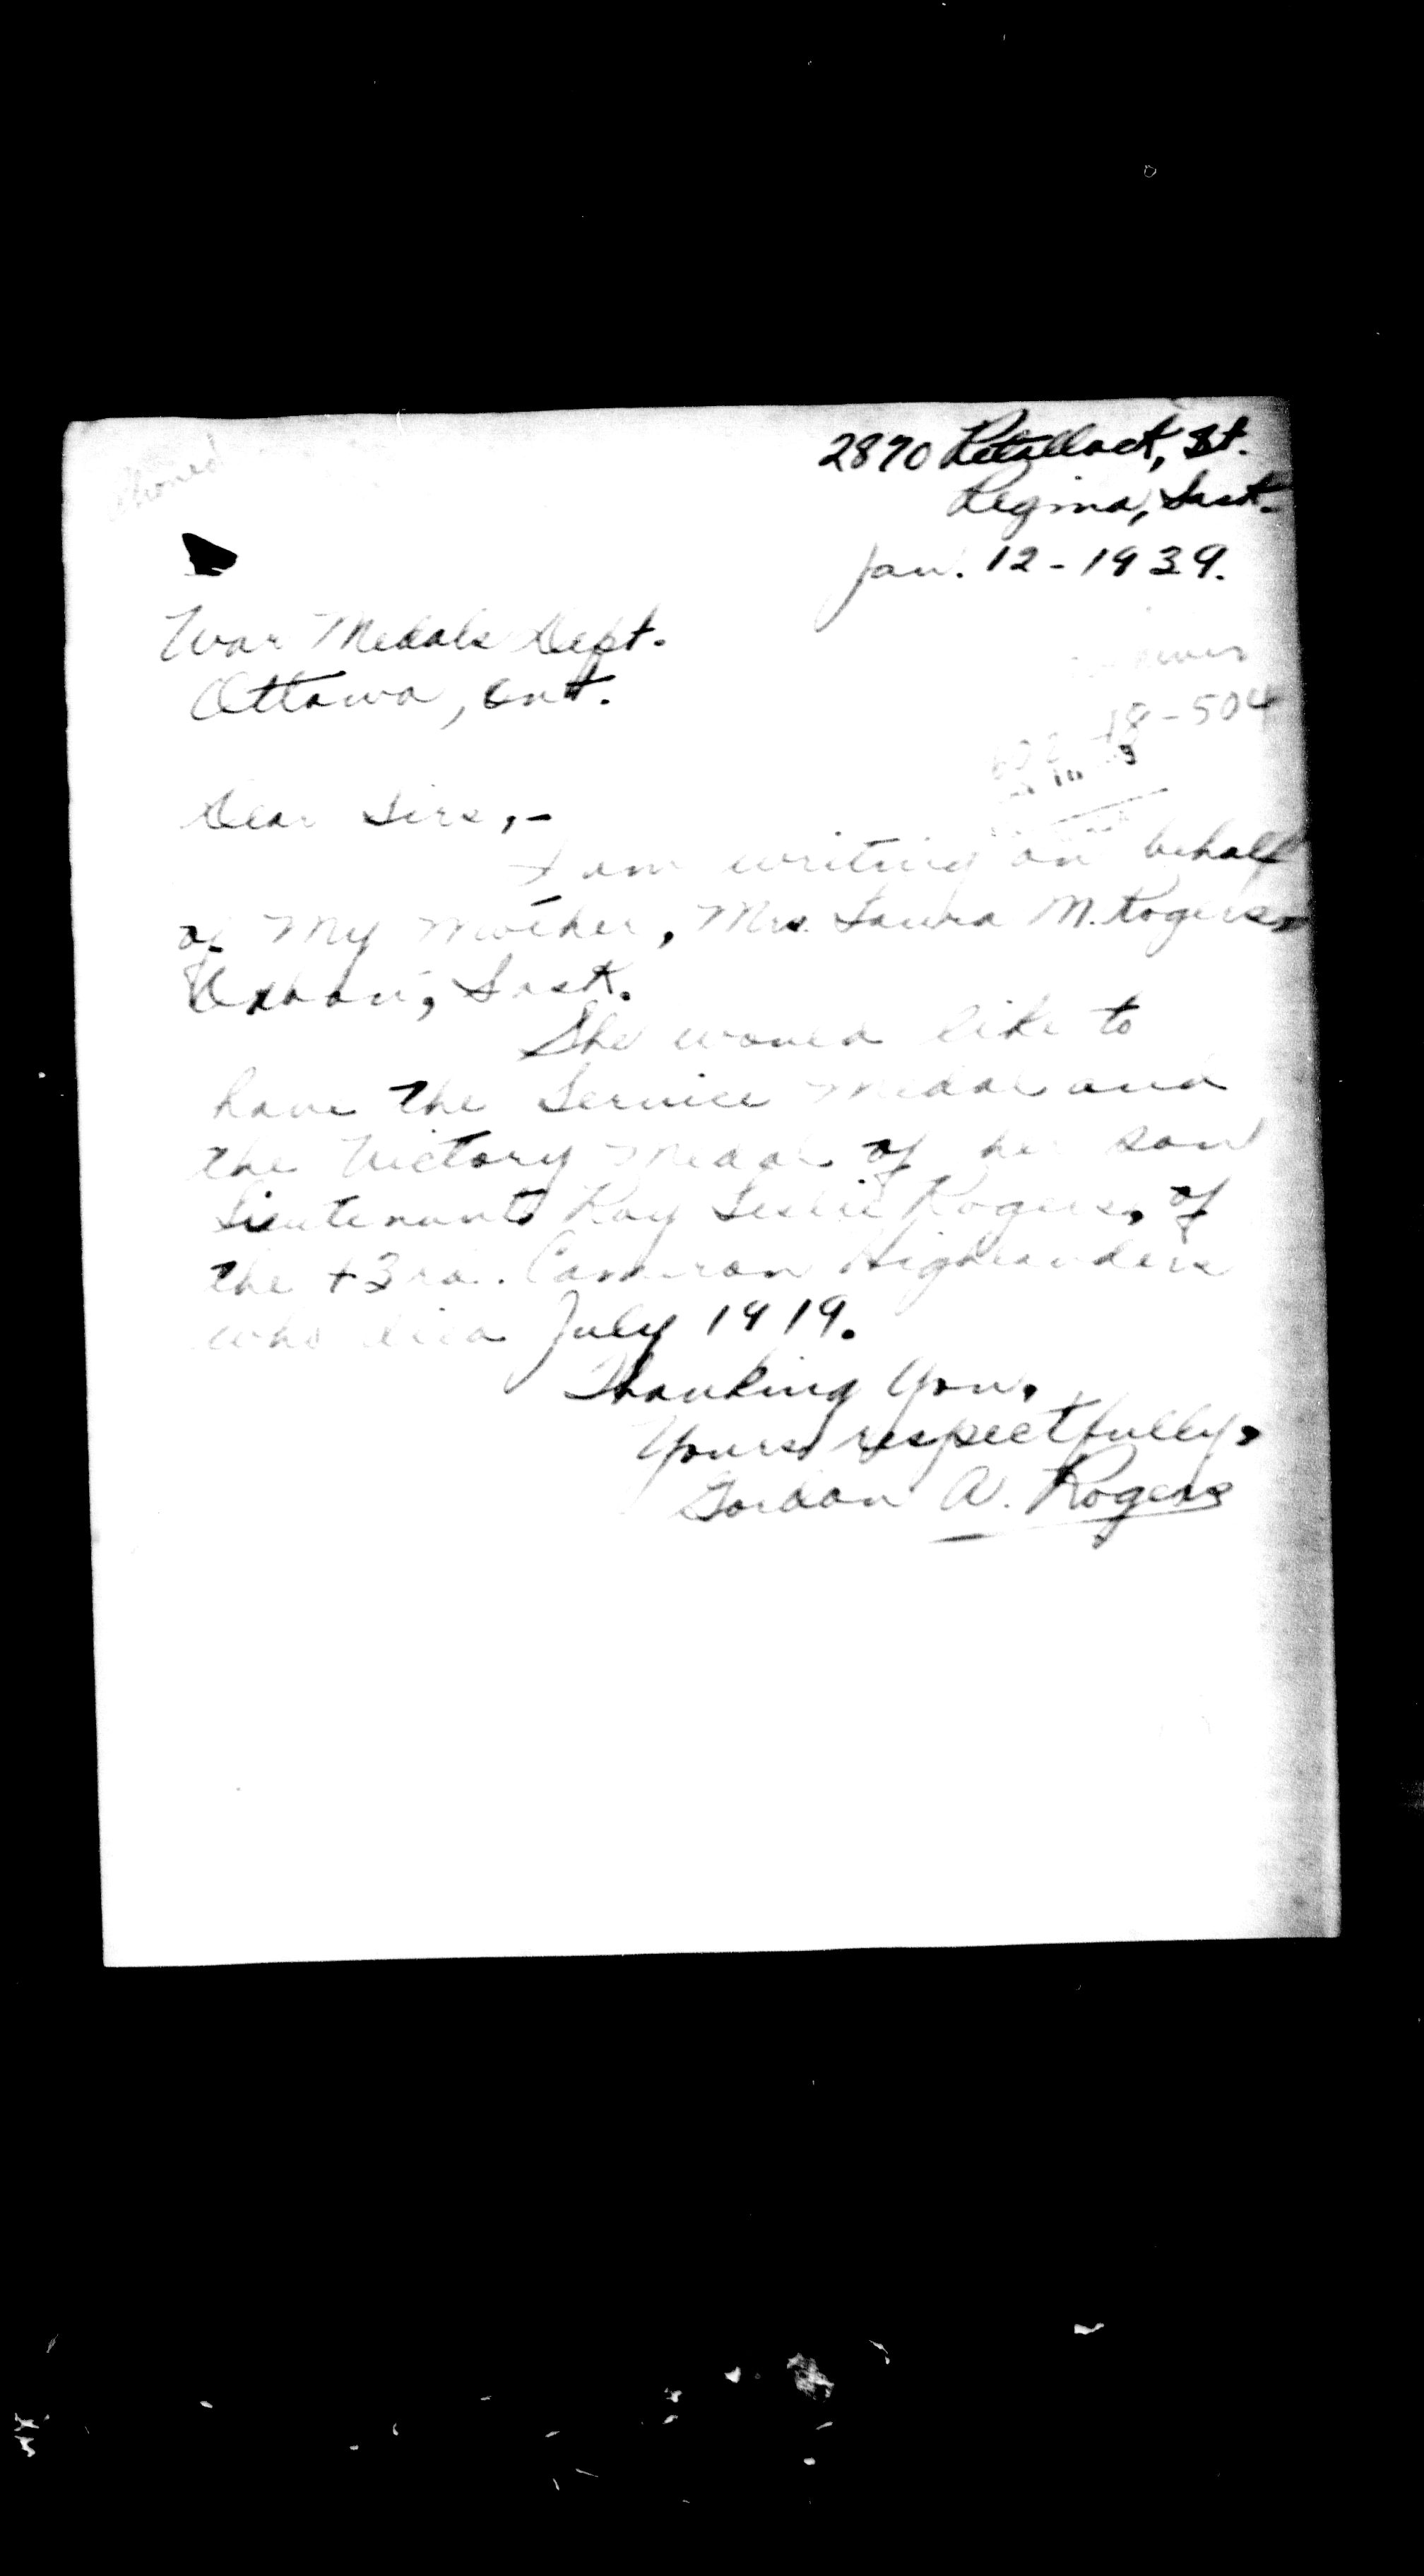 2870 Retallack, St.
Regina, Sask.
Jan. 12-1939.
War Medals Dept.
Ottawa, Ont.
18-504
Dear Sirs,-
I am writing on behalf
of My Mother, Mrs. Laura M. Rogers,
Sask.
She would like to
have the Service Medal and
the Victory Medal of her son
Lieutenant Roy Leslie Rogers, of
the Cameron Highlanders
who died July 1919.
Thanking You,
Yours respectfully,
Gordon A. Rogers